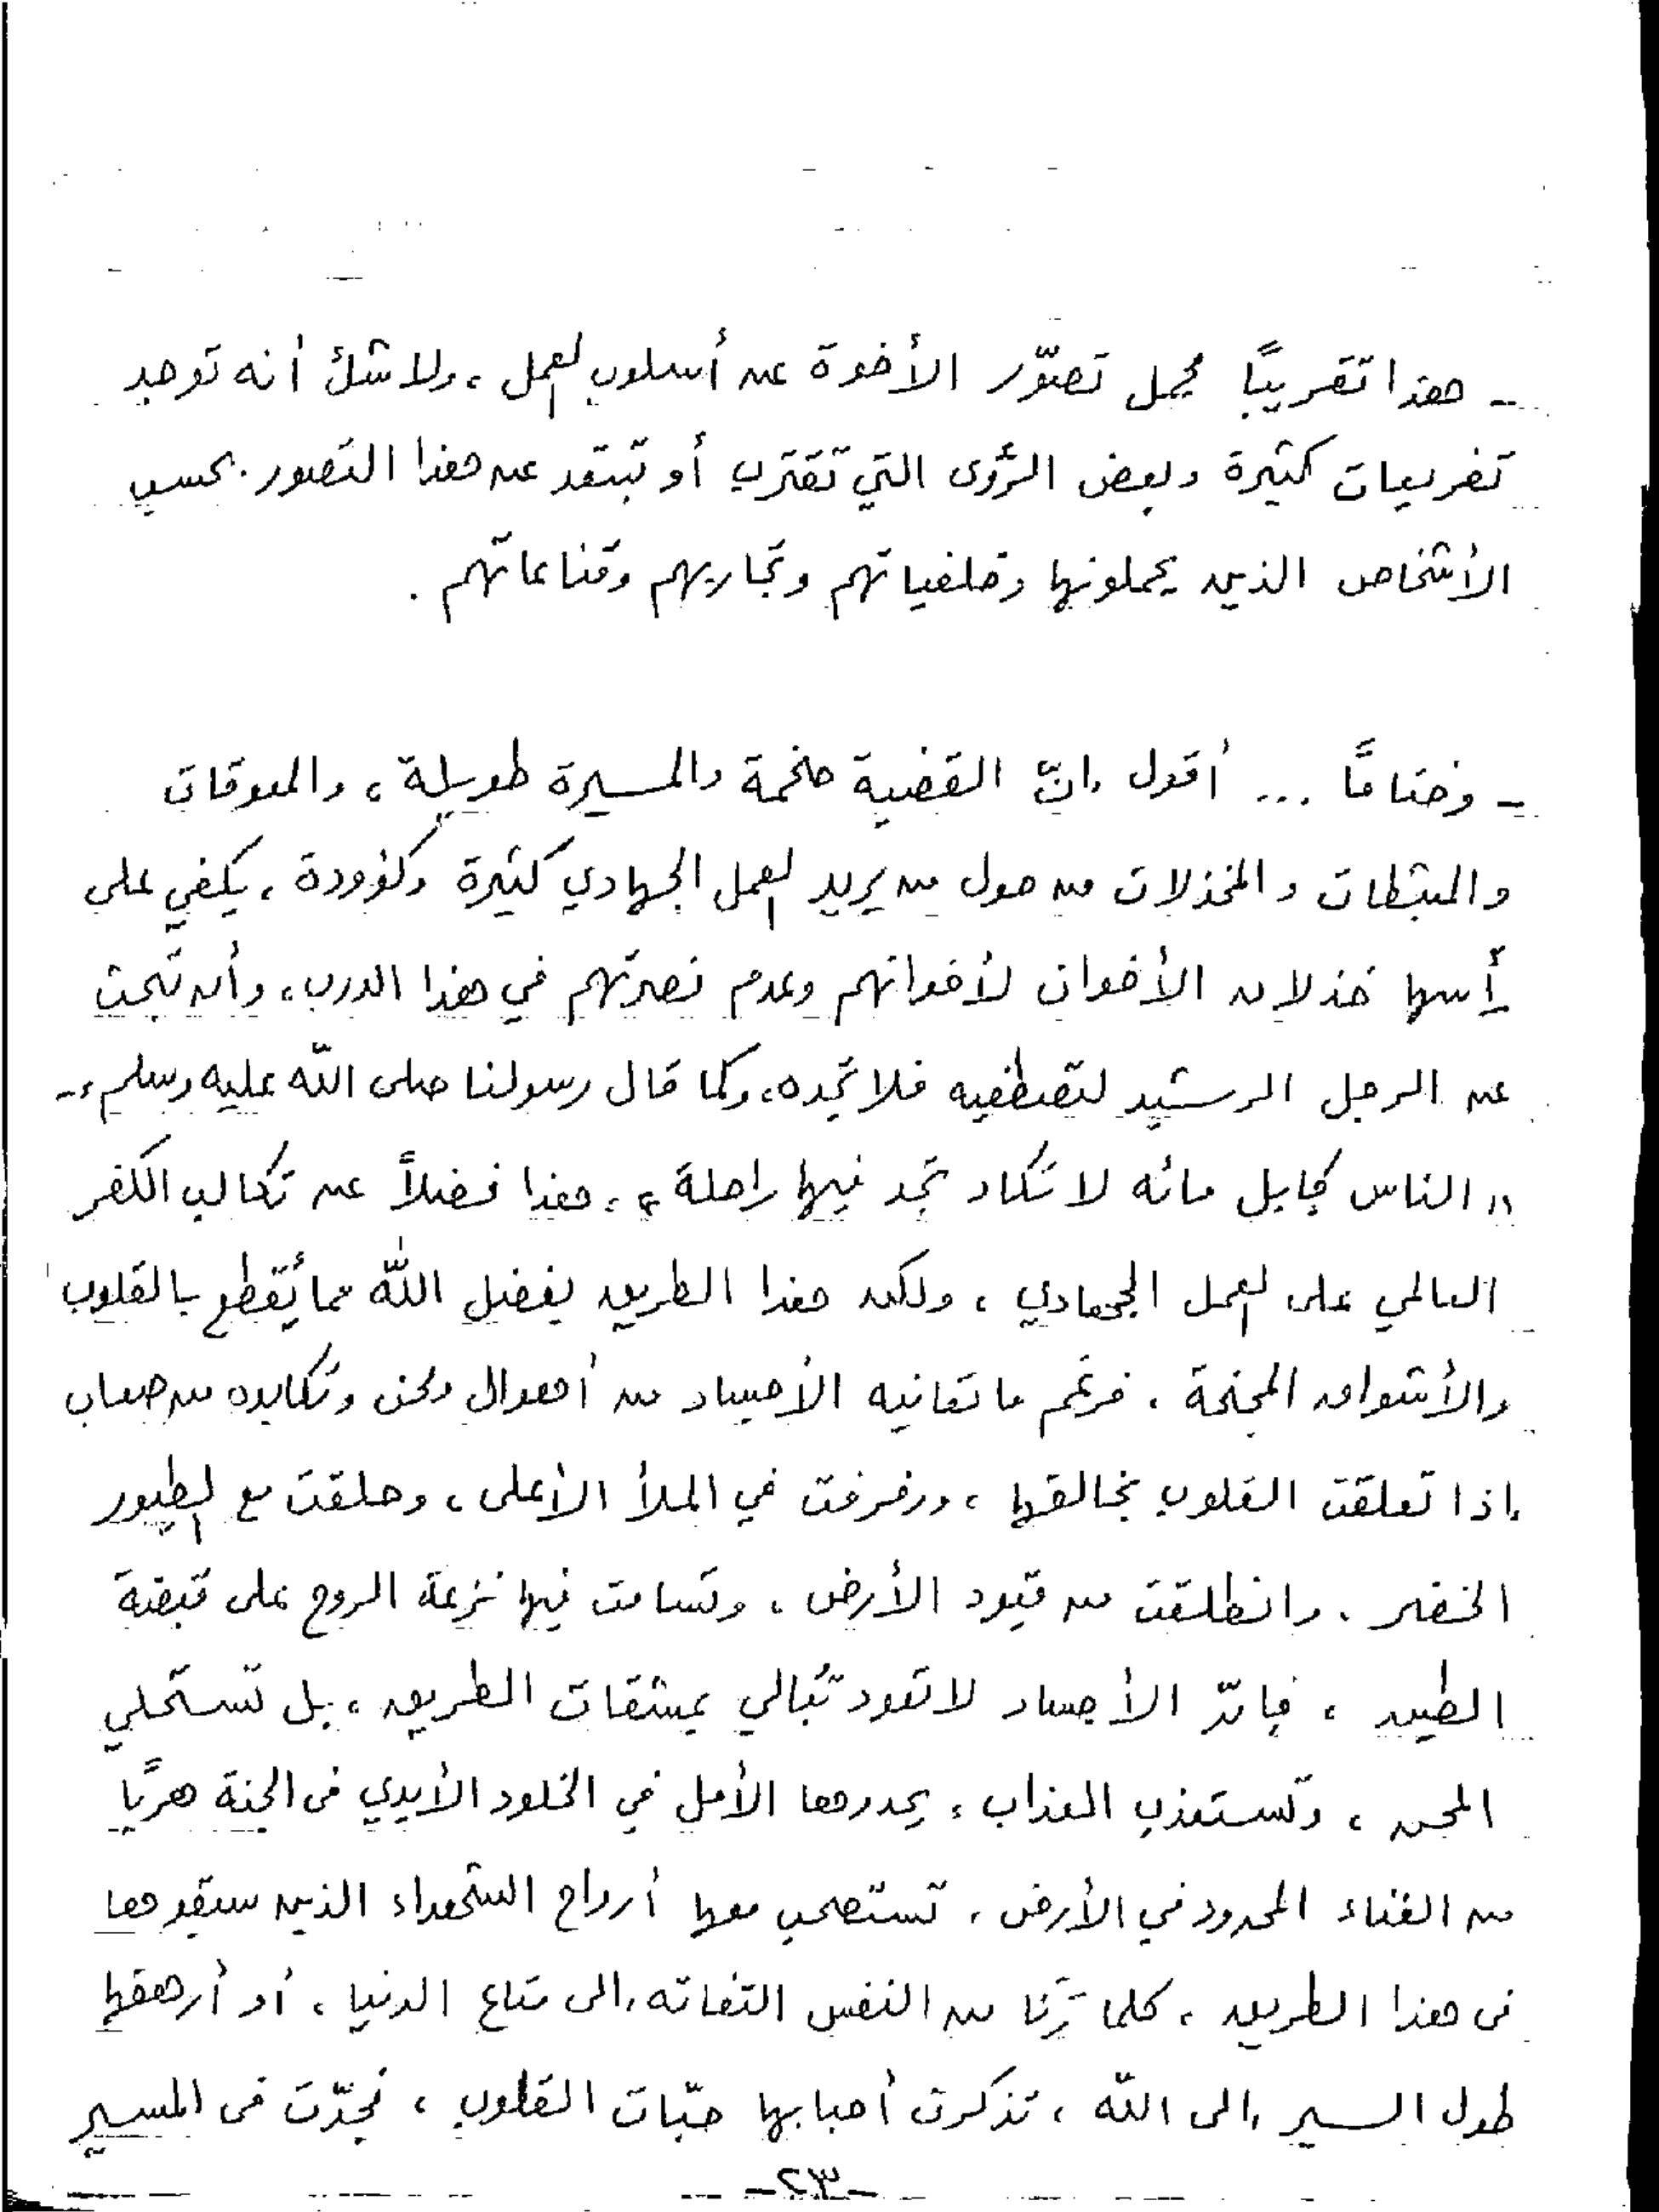 - هذا تقريبًا مجمل تصوّر الأخوة عن أسلوب العمل ، ولا شك أنه توجد
تفريعات كثيرة وبعض الرؤى التي تقترب أو تبتعد عن هذا التصور . بحسب
الأشخاص الذين يحملونها وخلفياتهم وتجاربهم وقناعاتهم .
- وختامًا ... أقول إنّ القضية ضخمة والمسيرة طويلة ، والمعوقات
والمثبطات والمخذلات من حول من يريد العمل الجهادي كثيرة وكؤودة ، يكفي على
رأسها خذلان الأخوان لأخوانهم وعدم نصرتهم في هذا الدرب ، وأن تبحث
عن الرجل الرشيد لتصطفيه فلا تجده ، وكما قال رسولنا صلى الله عليه وسلم :-
" الناس كإبل مائه لا تكاد تجد فيها راحلة " ، هذا فضلاً عن تكالب الكفر
العالمي على العمل الجهادي ، ولكن هذا الطريق بفضل الله مما يُقطع بالقلوب
والأشواق المجنحة . فرغم ما تعانيه الأجساد من أهوال ومحن وتكابده من صعاب
إذا تعلقت القلوب بخالقها ، ورفرفت في الملأ الأعلى ، وحلقت مع الطيور
الخضر . وانطلقت من قيود الأرض ، وتسامت فيها نزعة الروح على قبضة
الطين ، فإنّ الأجساد لا تعود تُبالي بمشقات الطريق ، بل تستحلي
المحن ، وتستعذب العذاب ، يحدوها الأمل في الخلود الأبدي في الجنة هربًا
من الفناء المحدود في الأرض ، تستصحب معها أرواح الشهداء الذين سبقوها
في هذا الطريق ، كلما من النفس التفاته إلى متاع الدنيا ، أو أرهقها
طول السير إلى الله ، تذكرت أحبابها حبّات القلوب ، فجدّت في المسير
-٢٣-